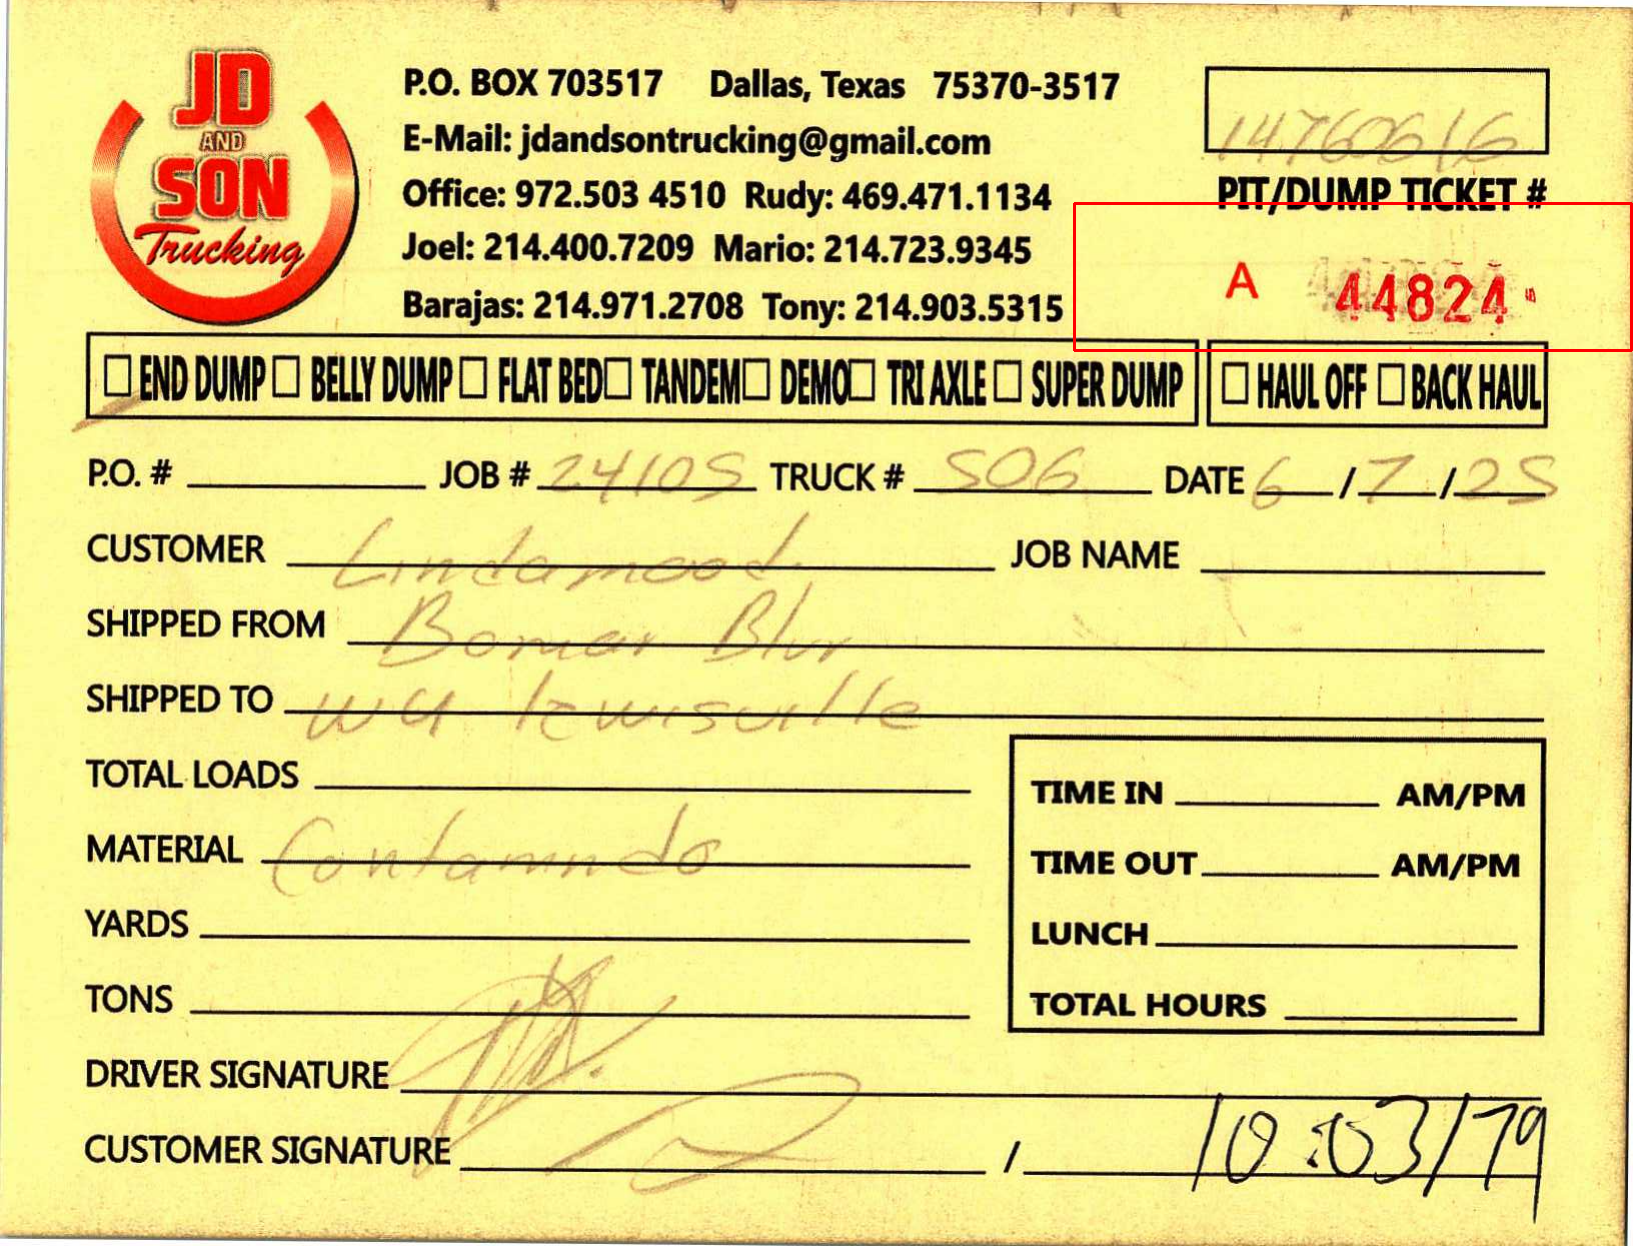 JD
AND
SON
Trucking
P.O. BOX 703517 Dallas, Texas 75370-3517
E-Mail: jdandsontrucking@gmail.com
Office: 972.503 4510 Rudy: 469.471.1134
Joel: 214.400.7209 Mario: 214.723.9345
Barajas: 214.971.2708 Tony: 214.903.5315
14760616
PIT/DUMP TICKET #
A 44824
END DUMP BELLY DUMP FLAT BED TANDEM DEMO TRI AXLE SUPER DUMP HAUL OFF BACK HAUL
P.O. # JOB # 24105 TRUCK # 506 DATE 6/7/25
CUSTOMER Lindamood JOB NAME
SHIPPED FROM Bomar Blvr
SHIPPED TO WM lewisville
TOTAL LOADS
MATERIAL Contamndo
YARDS
TONS
TIME IN AM/PM
TIME OUT AM/PM
LUNCH
TOTAL HOURS
DRIVER SIGNATURE
CUSTOMER SIGNATURE / 10:03/79